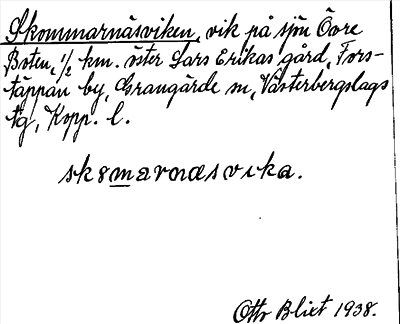 Skommarnäsviken, vik på sjön Övre
Boten, 1/2 km. öster Lars Erikas gård, Fors-
täppan by, Grangärde sn, Västerbergslags
tg, Kopp. l.
sk8marnæsvika.
Otto Blixt 1938.